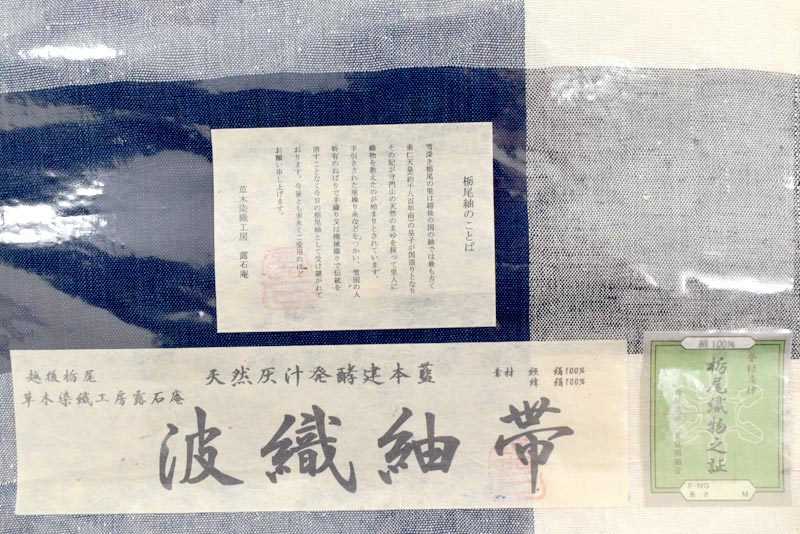 栃尾紬のことば
雪深き栃尾の里は越後の国の紬では最も古く
垂仁天皇(約千八百年前)の皇子が国造りとなり
その妃が守門山の天然のまゆを採って里人に
織物を教えたのが始まりとされています。
手引きされた座繰り糸などをつかい、雪国の人
特有のねばりで手織り又は機械織りで伝統を
消すことなく今日の栃尾紬として受け継がれて
おります。今後とも末永くご愛用のほど
お願い申し上げます。
草木染織工房 露石庵
越後栃尾
草木染織工房露石庵
天然灰汁発酵建本藍
素材 経 絹100%
緯 絹100%
波織紬帯
絹100%
登録商標
栃尾織物之証
F-NG
長さ M